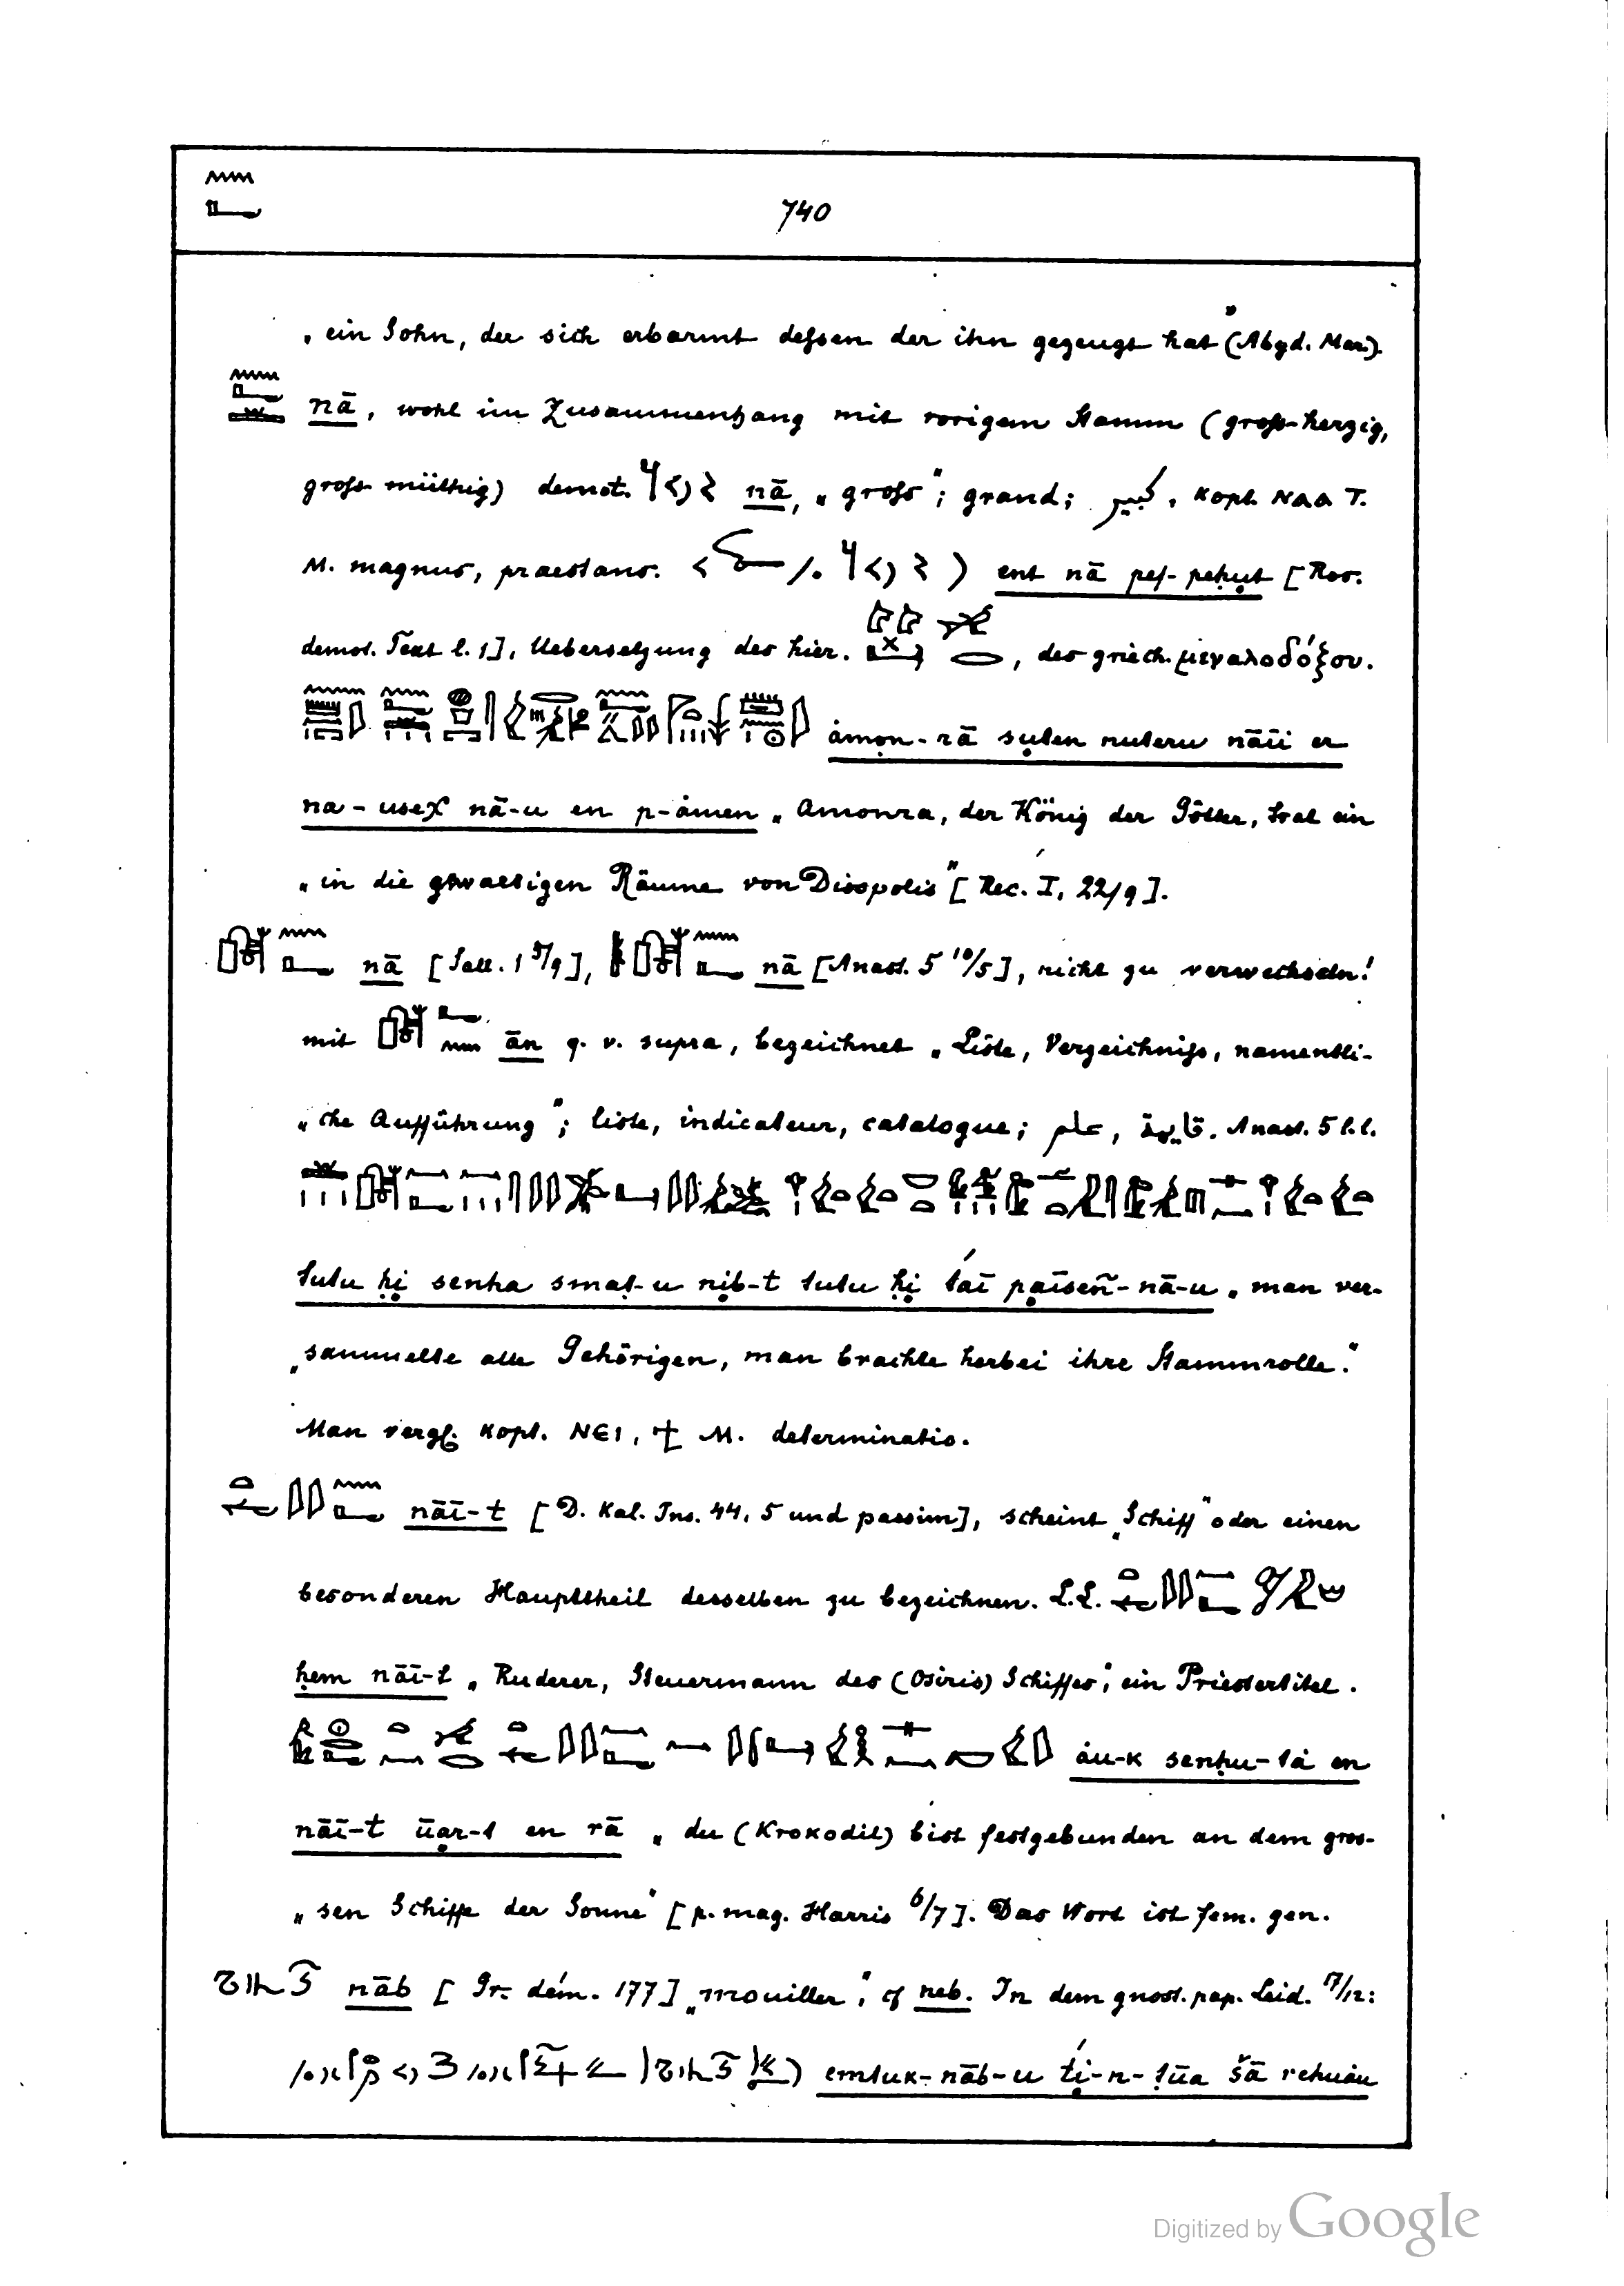 740
„ein Sohn, der sich erbarmt dessen der ihn gezeugt hat“ (Abyd. Mar.).
nā, wohl im Zusammenhang mit vorigem Stamm (gross-herzig,
gross müthig) demot. nā, „gross“; grand; كبير, kopt. ⲚⲀⲀ T.
M. magnus, praestans. ent nā pef-peḥut [Ros.
demot. Text l. 1], Uebersetzung des hier. , des griech. μεγαλοδόξου.
ȧmon-rā suten nuteru nāīi er
na-useχ nā-u en p-ȧmen „Amonra, der König der Götter, trat ein
„in die gewaltigen Räume von Diospolis“ [Rec. I, 22/9].
nā [Sall. 1 5/9], nā [Anast. 5 10/5], nicht zu verwechseln!
mit ān q. v. supra, bezeichnet „Liste, Verzeichniss, namentli-
„che Aufführung“; liste, indicateur, catalogue; علم, قايمة. Anast. 5 l.l.
tutu ḥi senha smat-u nib-t tutu ḥi t́ai paīsen-nā-u „man ver-
„sammelte alle Gehörigen, man brachte herbei ihre Stammrolle.“
Man vergl. kopt. ⲚⲈⲒ, ϯ M. determinatio.
nāī-t [D. Kal. Ins. 44, 5 und passim], scheint „Schiff“ oder einen
besonderen Haupttheil desselben zu bezeichnen. L.L.
ḥem nāī-t „Ruderer, Steuermann des (Osiris) Schiffes“, ein Priestertitel.
ȧu-k senḥu-tȧ en
nāī-t ūar-t en rā „du (Krokodil) bist festgebunden an dem gros-
„sen Schiffe der Sonne“ [p. mag. Harris 6/7]. Das Wort ist fem. gen.
nāb [Gr. dém. 177] „mouiller“, cf neb. In dem gnost. pap. Leid. 17/12:
emtuk-nāb-u t́i-n-tūa šā rehuȧu
Digitized by Google